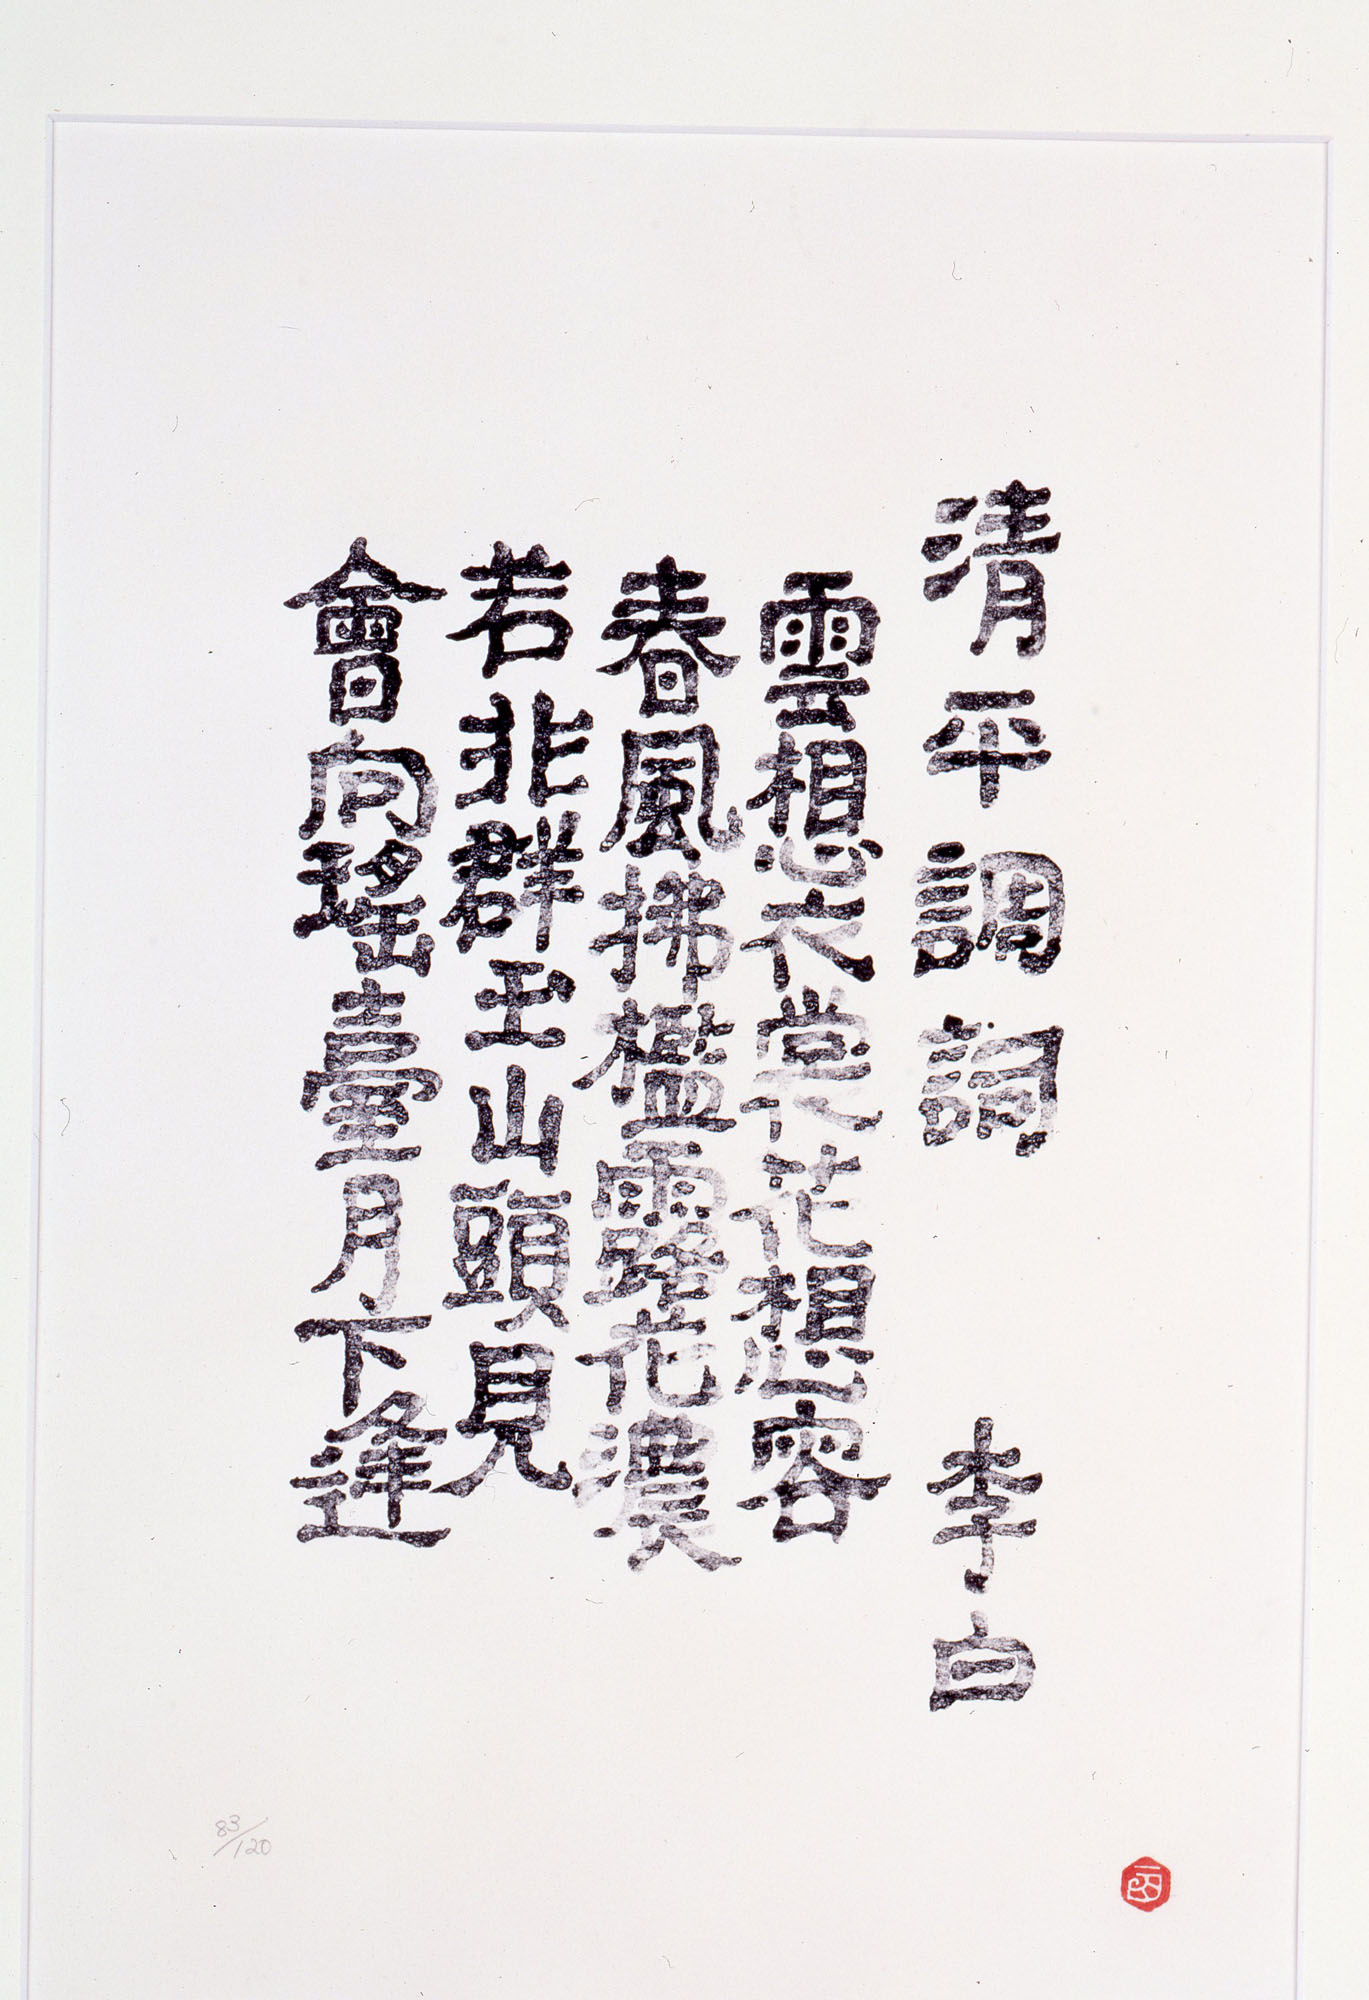 清平調詞 李白
雲想衣裳花想容
春風拂檻露花濃
若非群玉山頭見
會向瑤臺月下逢
83/120